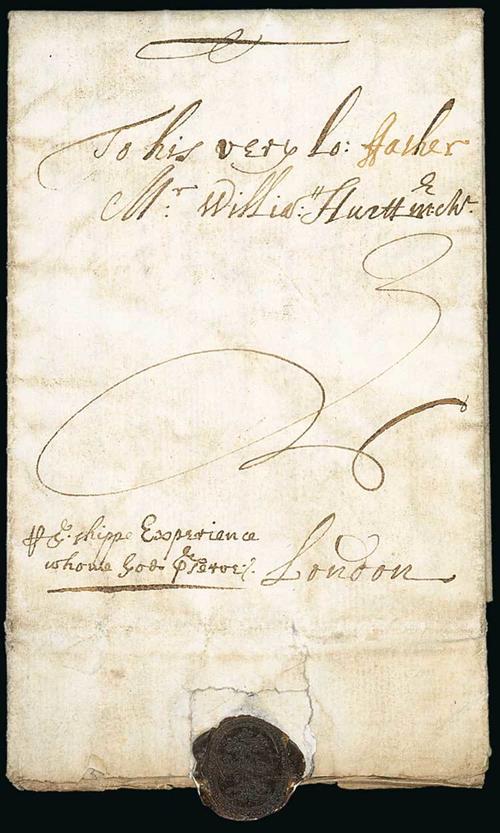 To his very lo: ffather
Mr. Willia: Hurtt
pp ye. shippe Experience
whome God preserve.
London